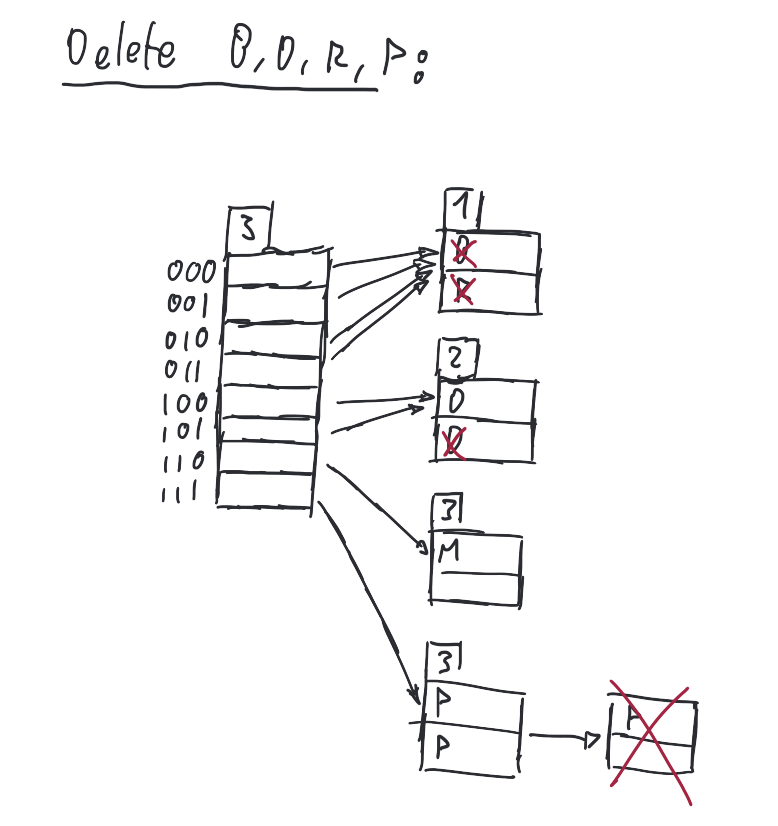 Delete B, D, R, P:
3
000
001
010
011
100
101
110
111
1
2
D
3
M
3
P
P